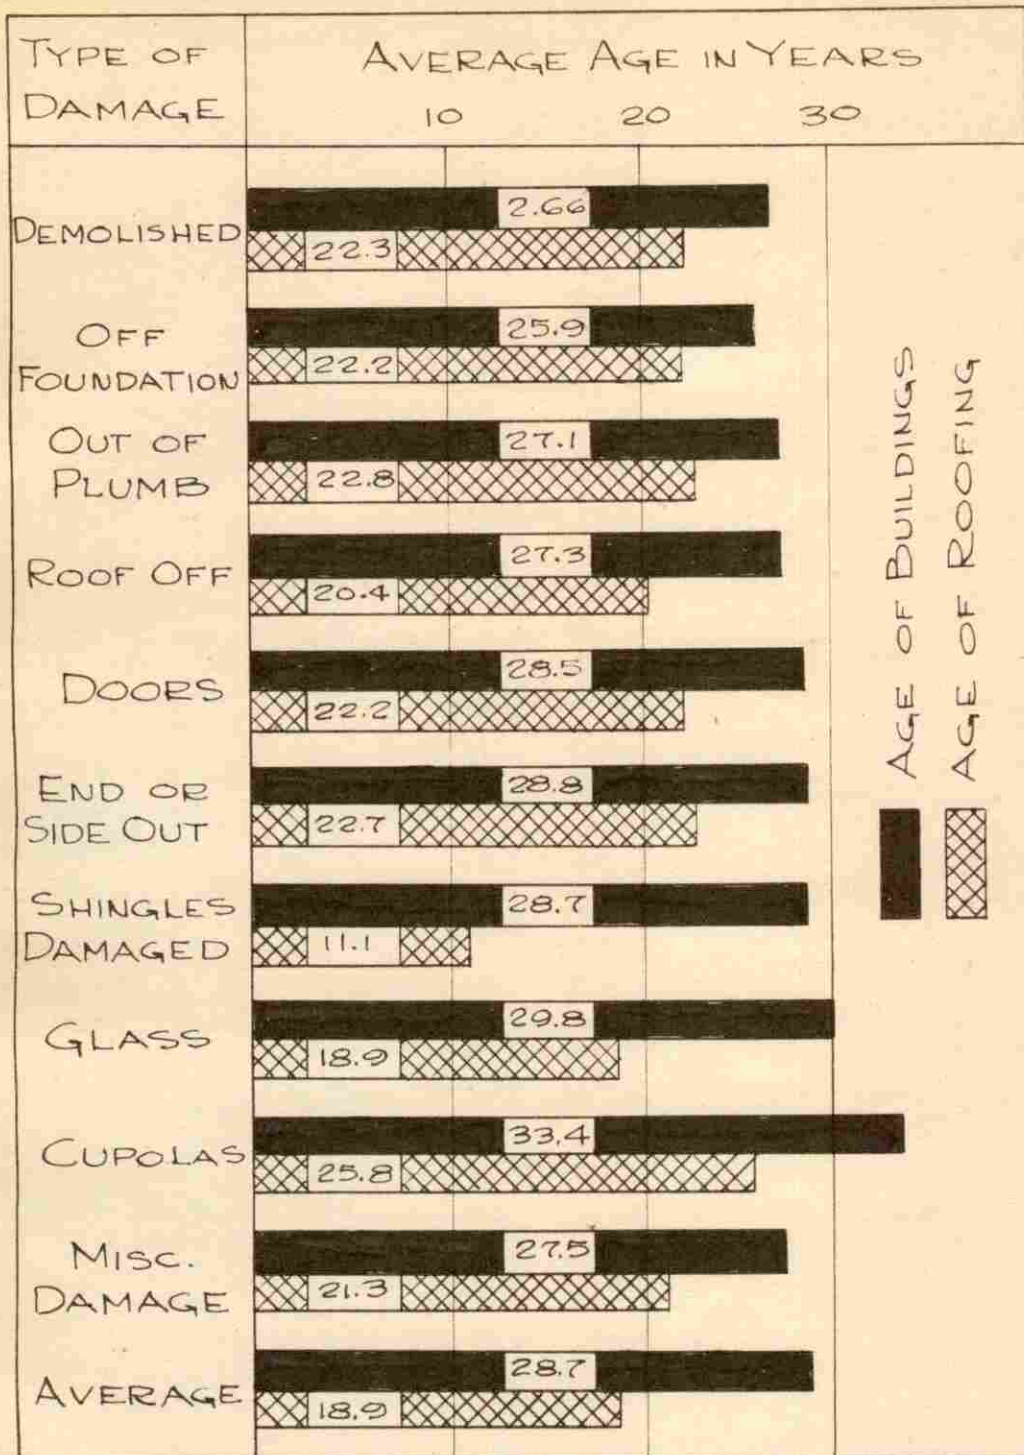 TYPE OF
DAMAGE
AVERAGE AGE IN YEARS
10 20 30
DEMOLISHED
2.66
22.3
OFF
FOUNDATION
25.9
22.2
OUT OF
PLUMB
27.1
22.8
ROOF OFF
27.3
20.4
DOORS
28.5
22.2
END OR
SIDE OUT
28.8
22.7
SHINGLES
DAMAGED
28.7
11.1
GLASS
29.8
18.9
CUPOLAS
33.4
25.8
MISC.
DAMAGE
27.5
21.3
AVERAGE
28.7
18.9
AGE OF BUILDINGS
AGE OF ROOFING